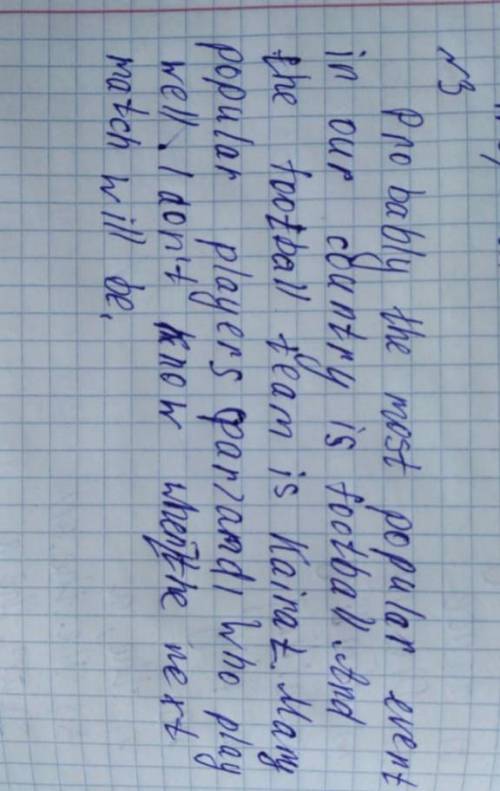 №3
Probably the most popular event
in our country is football. And
the football team is Kairat. Many
popular players who play
well. I don't know when the next
match will be.